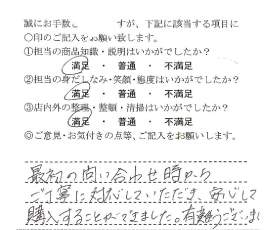 誠にお手数 すが、下記に該当する項目に
○印のご記入をお願い致します。
①担当の商品知識・説明はいかがでしたか？
満足 ・ 普通 ・ 不満足
②担当の身だしなみ・笑顔・態度はいかがでしたか？
満足 ・ 普通 ・ 不満足
③店内外の整理・整頓・清掃はいかがでしたか？
満足 ・ 普通 ・ 不満足
◎ご意見・お気付きの点等、ご記入をお願いします。
最初の問い合わせ時から
ご丁寧に対応していただき、安心して
購入することができました。有難うございま